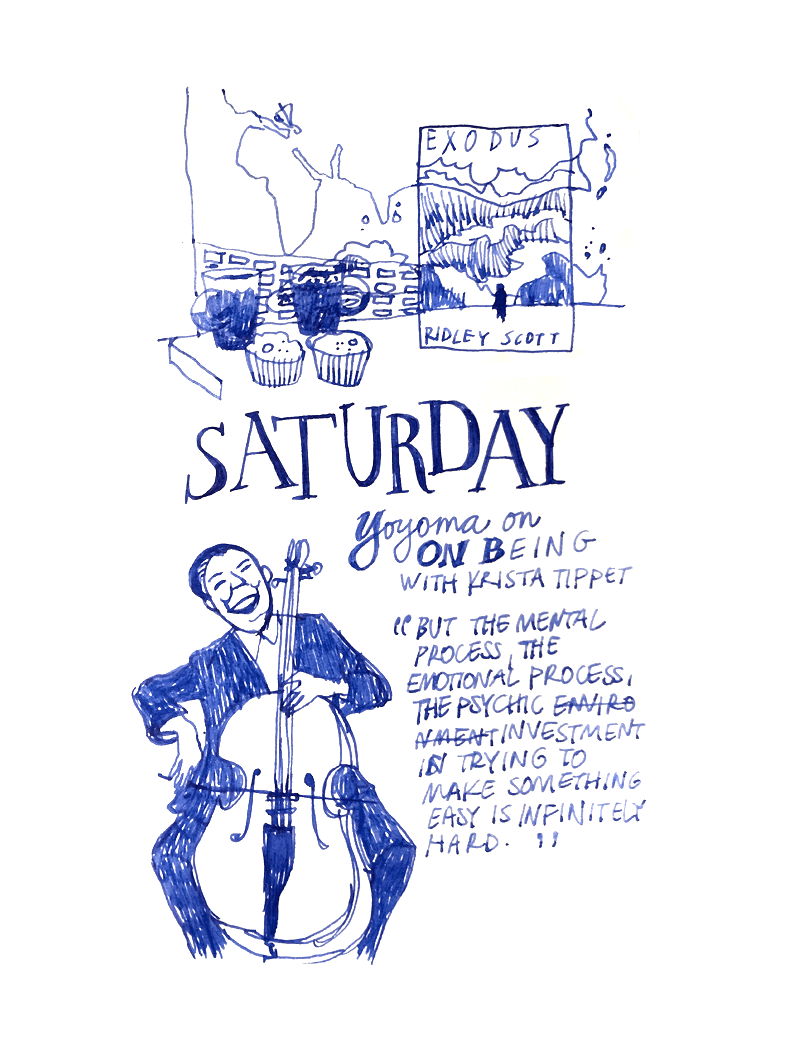 EXODUS
RIDLEY SCOTT
SATURDAY
Yoyoma on
ON BEING
WITH KRISTA TIPPET
"BUT THE MENTAL
PROCESS, THE
EMOTIONAL PROCESS,
THE PSYCHIC ENVIRO
NMENT INVESTMENT
IN TRYING TO
MAKE SOMETHING
EASY IS INFINITELY
HARD. "